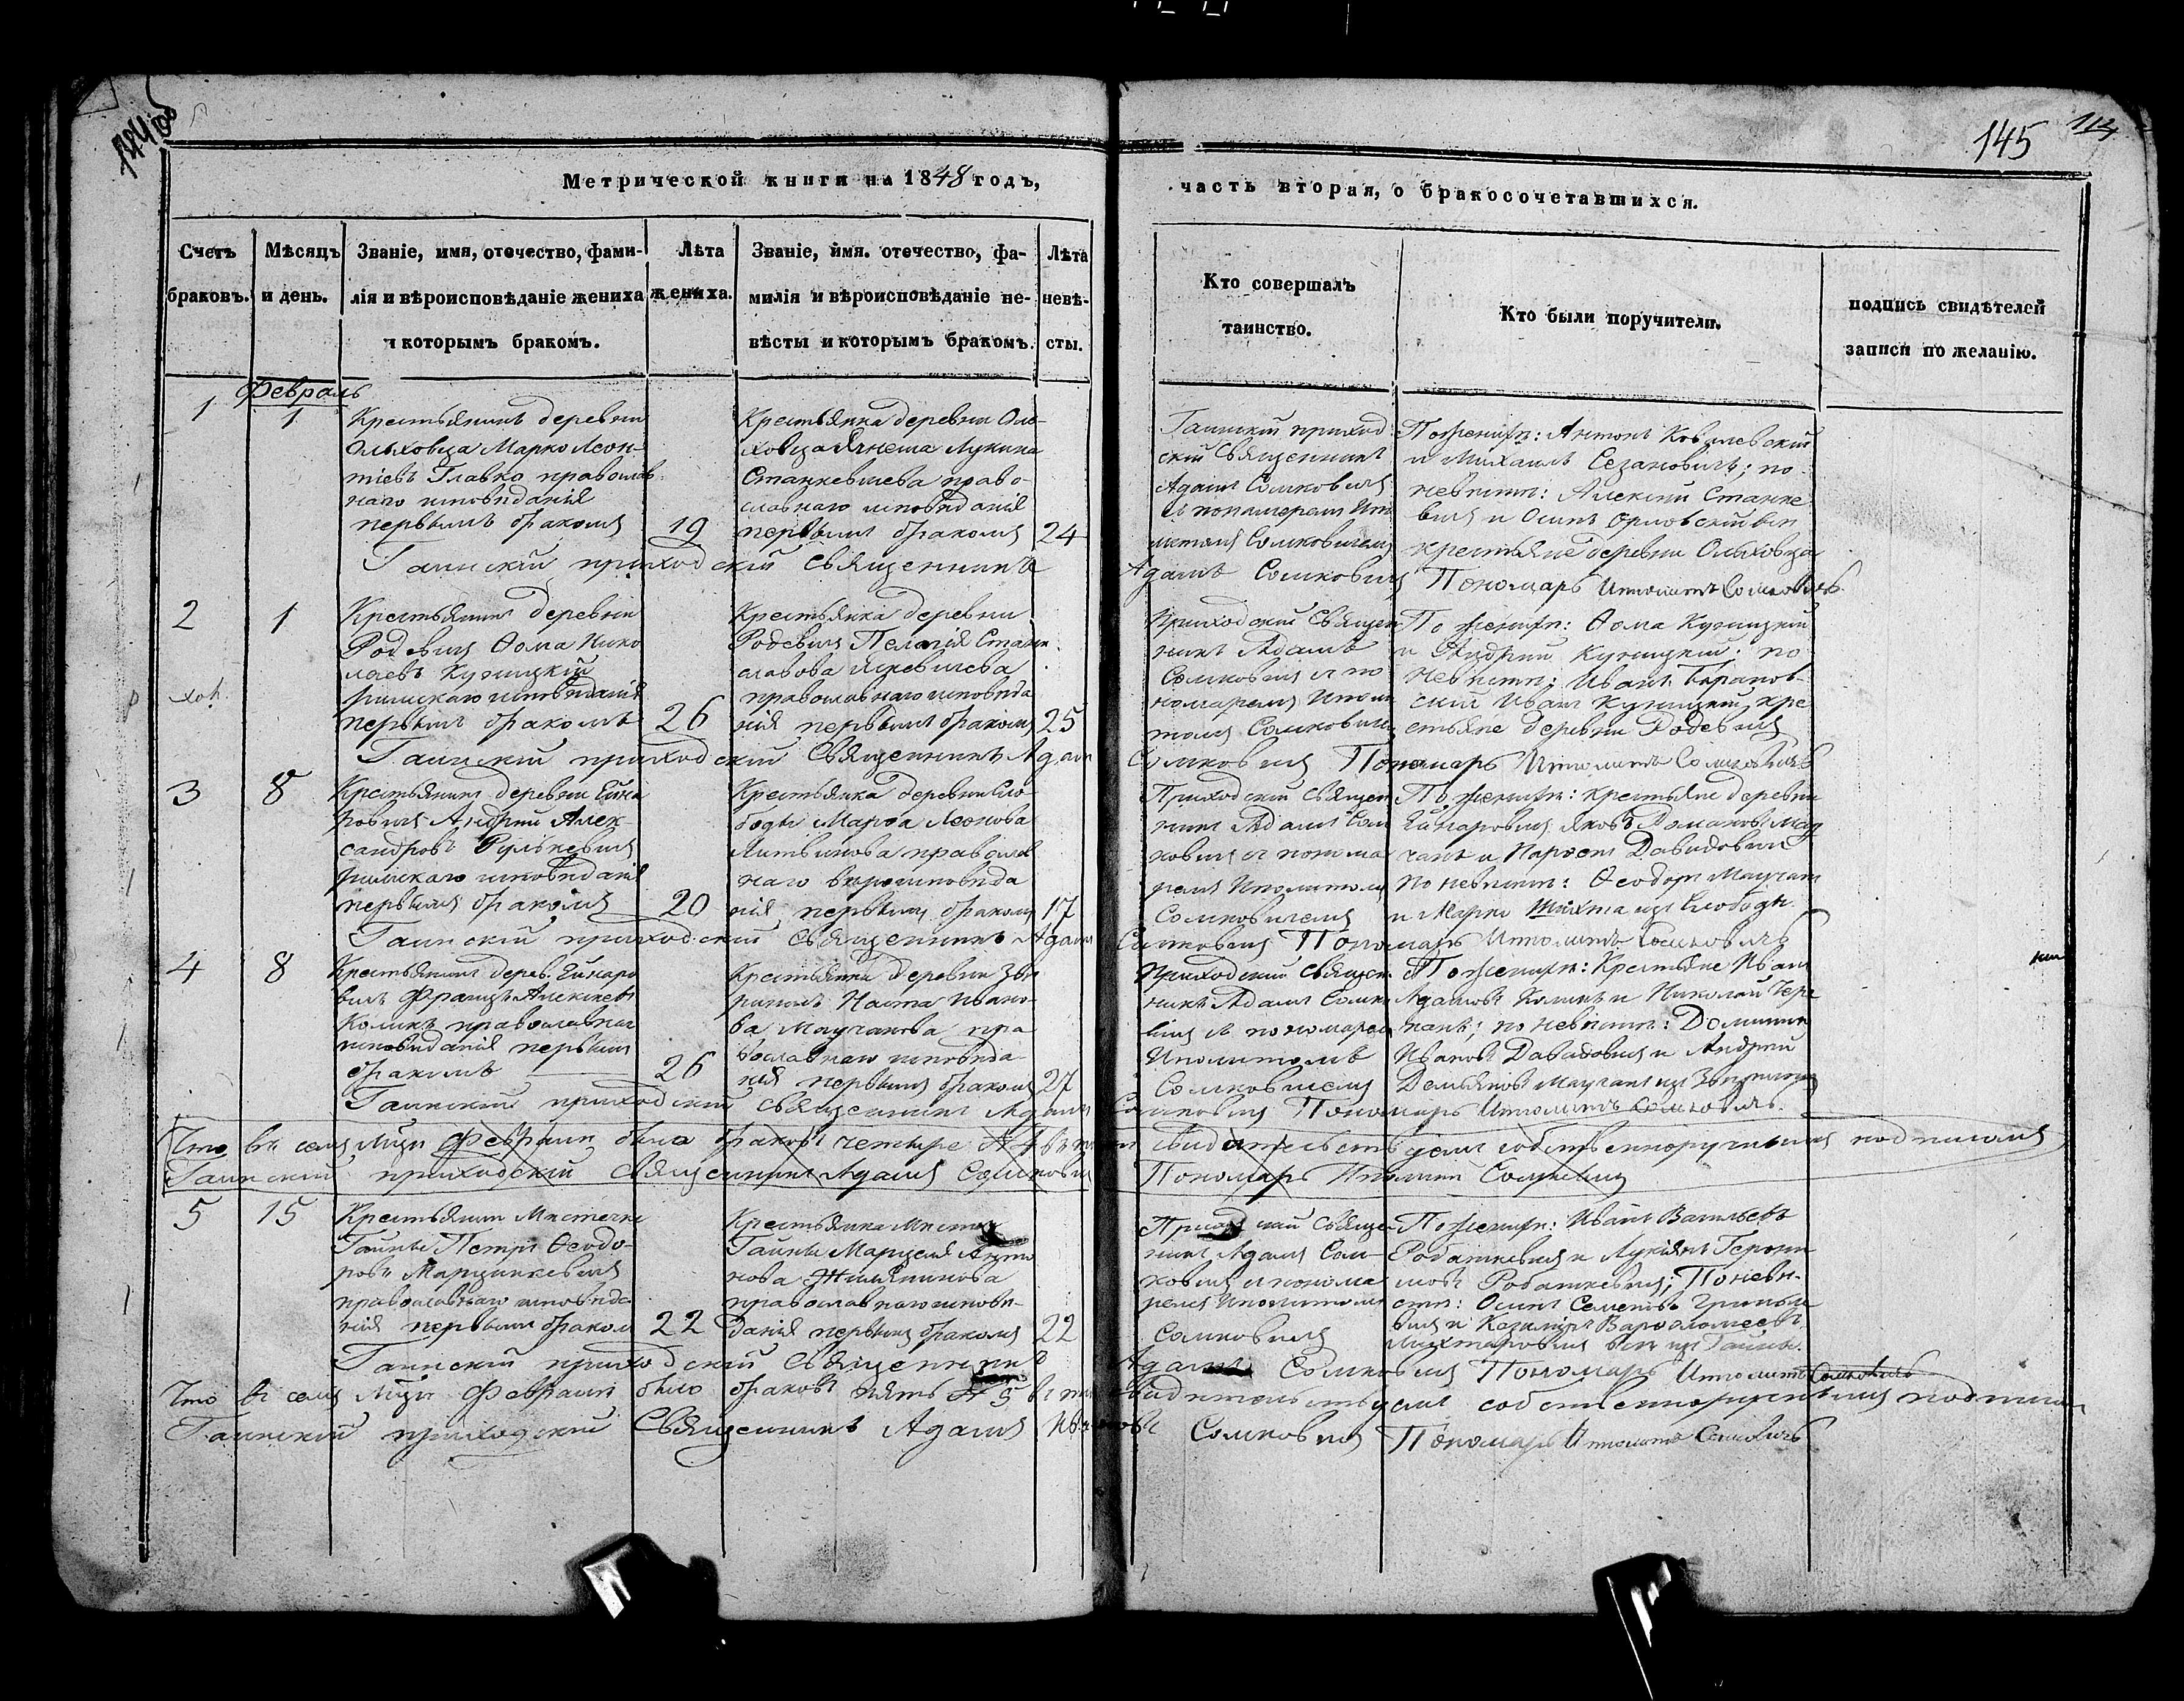 145
Метрической книги на 1848 годъ,
часть вторая, о бракосочетавшихся.
Счетъ браковъ.
Мѣсяцъ и день.
Званіе, имя, отечество, фами-
лія и вѣроисповѣданіе жениха
и которымъ бракомъ.
Лѣта
жениха.
Званіе, имя. отечество, фа-
милія и вѣроисповѣданіе не-
вѣсты и которымъ бракомъ.
Лѣта
невѣ-
сты.
Кто совершалъ
таинство.
Кто были поручители.
подпись свидѣтелей
записи по желанію.
Февраль
1
1
Крестьянинъ деревни
Ольховца Марко Леон-
тіевъ Главко православ-
наго исповѣданія
первымъ бракомъ
19
Крестьянка деревни Оль-
ховца Янета Лукина
Станкевичева право-
славнаго исповѣданія
первымъ бракомъ
24
Гаинскій приход
скій Священникъ
Адамъ Сомковичъ
съ пономаремъ Ип
литомъ Сомковичемъ
По женихѣ: Антонъ Ковалевскій
и Михаилъ Сезановичъ; по
невѣстѣ: Алексѣй Станке
вичъ и Осипъ Орловскій всѣ
крестьяне деревни Ольховца
Гаинскій приходскій Священникъ Адамъ Сомковичъ Пономарь Ипполитъ Сомковичъ
2
1
Крестьянинъ деревни
Родевичъ Ѳома Нико
лаевъ Куницкій
римскаго исповѣданія
первымъ бракомъ
26
Крестьянка деревни
Родевичъ Пелагія Стани
славова
православнаго исповѣда
нія первымъ бракомъ
25
Приходскій Священ
никъ Адамъ
Сомковичъ съ по
номаремъ Иппол
томъ Сомковичемъ
По женихѣ: Ѳома Куницкій
и Андрей Куницкій; по
невѣстѣ: Иванъ Баранов-
скій Иванъ Куницкій кре
стьяне деревни Родевичъ
Гаинскій приходскій Священникъ Адамъ Сомковичъ Пономарь Ипполитъ Сомковичъ
3
8
Крестьянинъ деревни Гайна
ровичъ Андрей Алек-
сандровъ Рулькевичъ
римскаго исповѣданія
первымъ бракомъ
20
Крестьянка деревни Сло-
боды Марѳа Леонова
Литвинова православ
наго вѣроисповѣда
нія первымъ бракомъ
17
Приходскій Священ
никъ Адамъ Сом
ковичъ съ понома
ремъ Ипполитомъ
Сомковичемъ
По женихѣ: крестьяне деревни
Гайнаровичъ Яковъ Романовъ Мау
чанъ и Давидовичъ
по невѣстѣ: Ѳеодоръ Маучанъ
и Марко Шихта изъ Слободы.
Гаинскій приходскій священникъ Адамъ Сомковичъ Пономарь Ипполитъ Сомковичъ
4
8
Крестьянинъ дерев. Гайнаро
вичъ Францъ Алексѣевъ
Комикъ православнаго
исповѣданія первымъ
бракомъ
26
Крестьянка деревни
Наста Ивано-
ва Маучанова пра
вославнаго исповѣда-
нія первымъ бракомъ
27
Приходскій Священ
никъ Адамъ Сомко
вичъ съ пономаремъ
Ипполитомъ
Сомковичемъ
По женихѣ: Крестьяне Иванъ
Адамовъ Комикъ и Николай Чере
панъ; по невѣстѣ: Доминикъ
Ивановъ Давидовичъ и Андрей
Демьяновъ Маучанъ изъ
Гаинскій приходскій священникъ Адамъ Сомковичъ Пономарь Ипполитъ Сомковичъ.
Что въ семъ Мцѣ Февралѣ было браковъ четыре № 4 въ томъ свидѣтельствуемъ собственноручнымъ подписомъ
Гаинскій приходскій Священникъ Адамъ Сомковичъ Пономарь Ипполитъ Сомковичъ
5
15
Крестьянинъ Мѣстечка
Гайны Петръ Ѳеодо-
ровъ Марцинкевичъ
православнаго исповѣда-
нія первымъ бракомъ
22
Крестьянка Мѣстечка
Гайны Марцеля Анто
нова Жилятинова
православнаго исповѣ-
данія первымъ бракомъ
22
Приходскій Священ
никъ Адамъ Сом-
ковичъ съ понома
ремъ Ипполитомъ
Сомковичъ
По женихѣ: Иванъ Васильевъ
Робашкевичъ и Лукіянъ Герони
мовъ Робашкевичъ; По невѣ-
стѣ: Осипъ Семеновъ Гриневи
вичъ и Казиміръ Варѳоломеевъ
всѣ изъ Гайны.
Гаинскій приходскій Священникъ Адамъ Сомковичъ Пономарь Ипполитъ Сомковичъ
Что въ семъ Мцѣ Февралѣ было браковъ пять № 5 въ томъ свидѣтельствуемъ собственноручнымъ подписомъ
Гаинскій приходскій Священникъ Адамъ Ивановъ Сомковичъ Пономарь Ипполитъ Сомковичъ